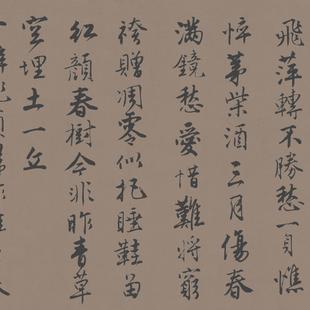 飛萍轉不勝愁一身憔
悴茅柴酒三月傷春
滿鏡愁愛惜難將窮
袴贈凋零似把睡鞋留
紅顏春樹今非昨青草
空埋土一丘